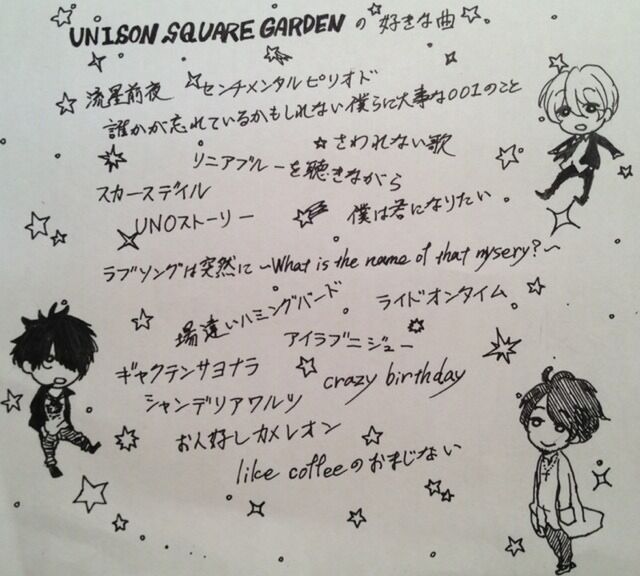 UNISON SQUARE GARDENの好きな曲
流星前夜 センチメンタルピリオド
誰かが忘れているかもしれない僕らに大事な001のこと
さわれない歌
リニアブルーを聴きながら
スカースデイル
UNOストーリー 僕は君になりたい
ラブソングは突然に〜What is the name of that mysery?〜
場違いハミングバード ライドオンタイム
アイラブニージュー
ギャクテンサヨナラ
crazy birthday
シャンデリアワルツ
お人好しカメレオン
like coffeeのおまじない